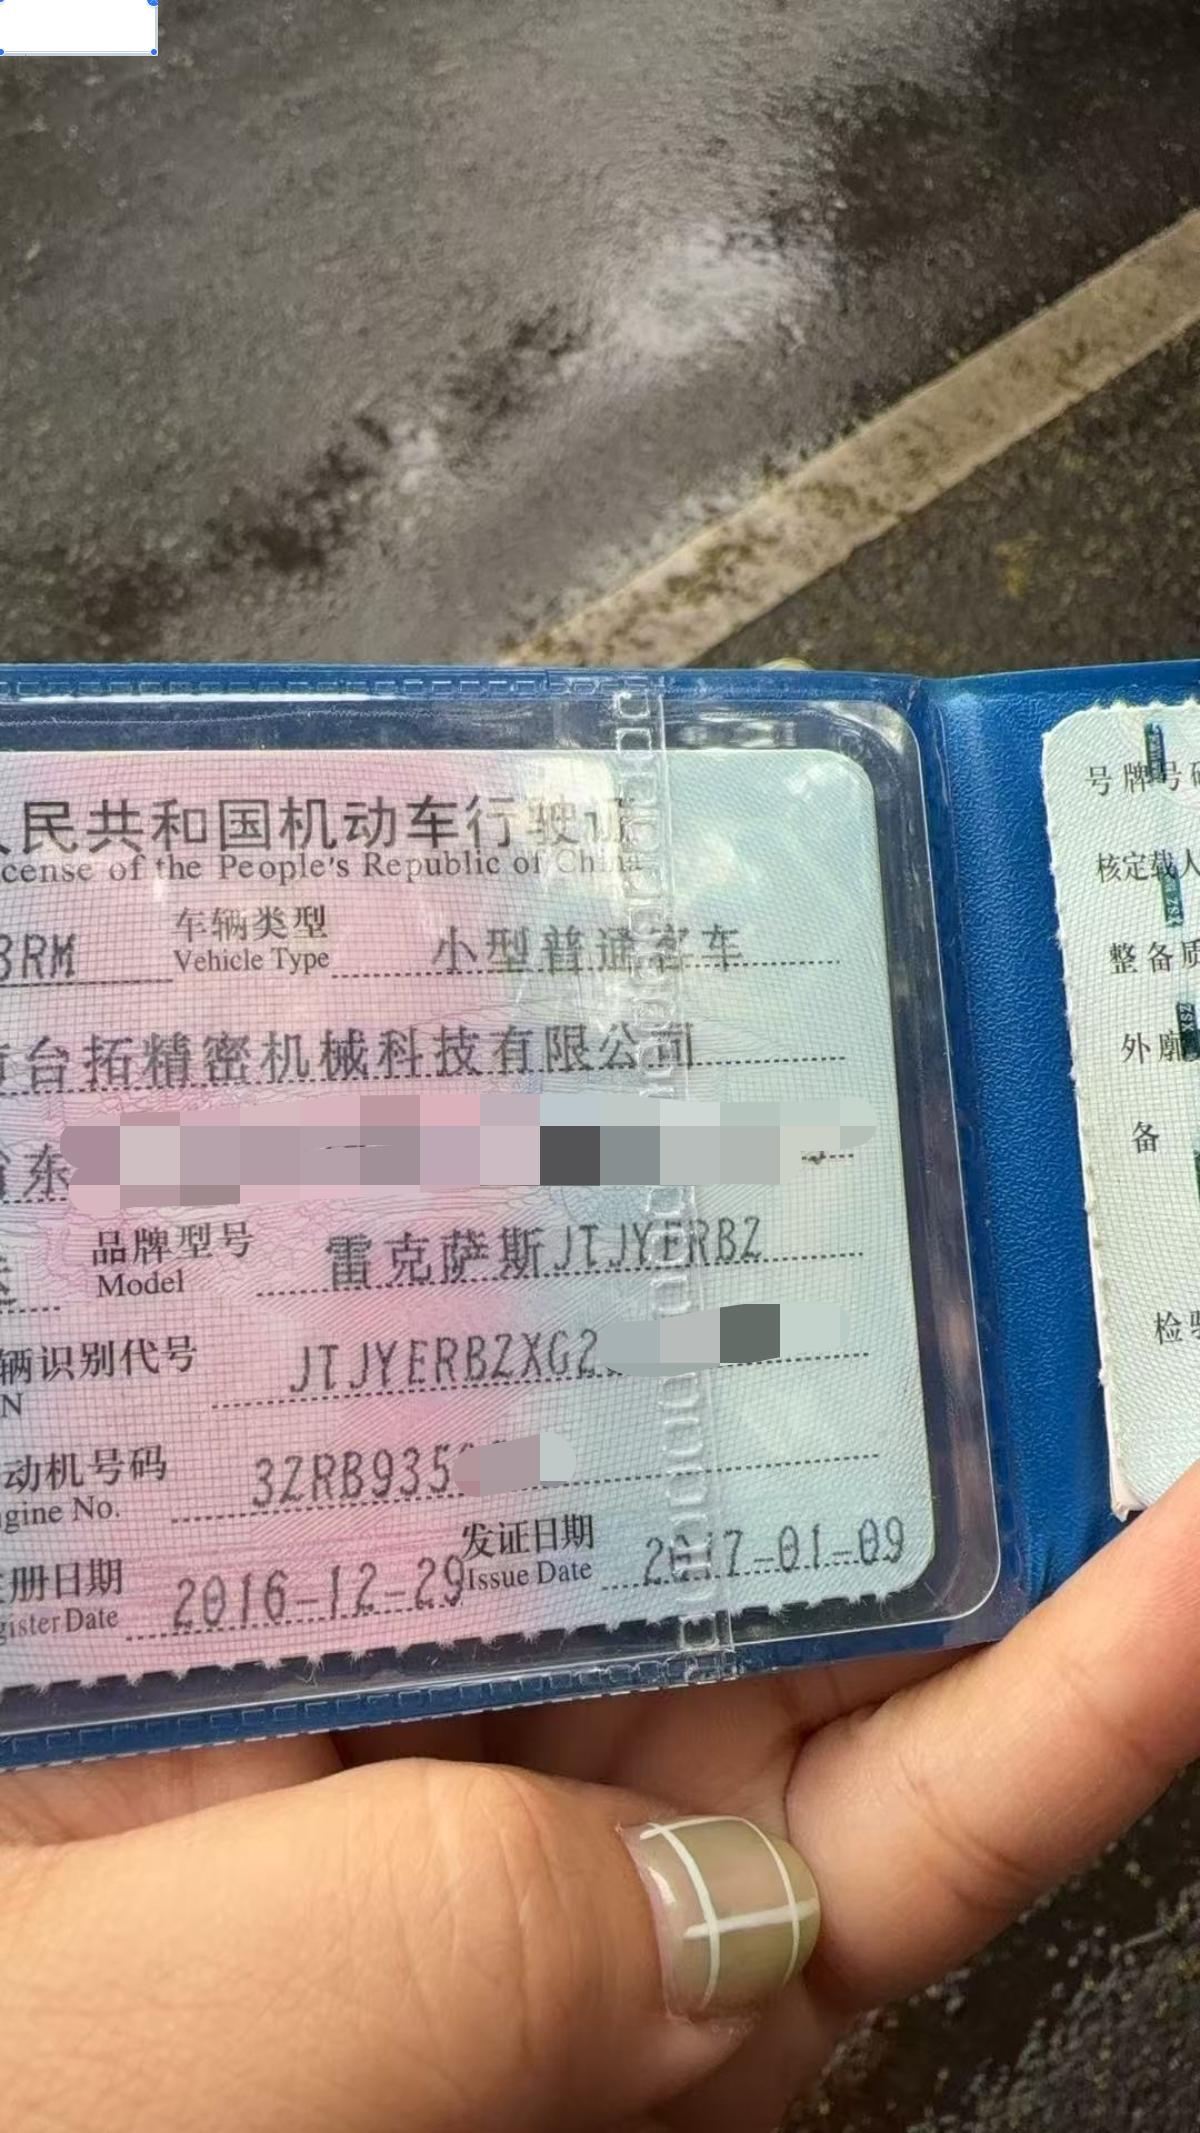 民共和国机动车行驶证
cense of the People's Republic of China
3RM 车辆类型 小型普通客车
Vehicle Type
台拓精密机械科技有限公司
东
品牌型号 雷克萨斯JTJYERBZ
Model
辆识别代号 JTJYERBZXG2
N
动机号码 3ZRB935
gine No.
册日期 2016-12-29 发证日期 2017-01-09
gister Date Issue Date
号牌号
核定载人
整备质
外廓
备
检验